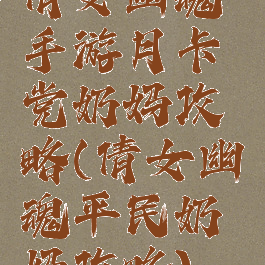 倩女幽魂
手游月卡
党奶妈攻
略(倩女幽
魂平民奶
妈攻略)